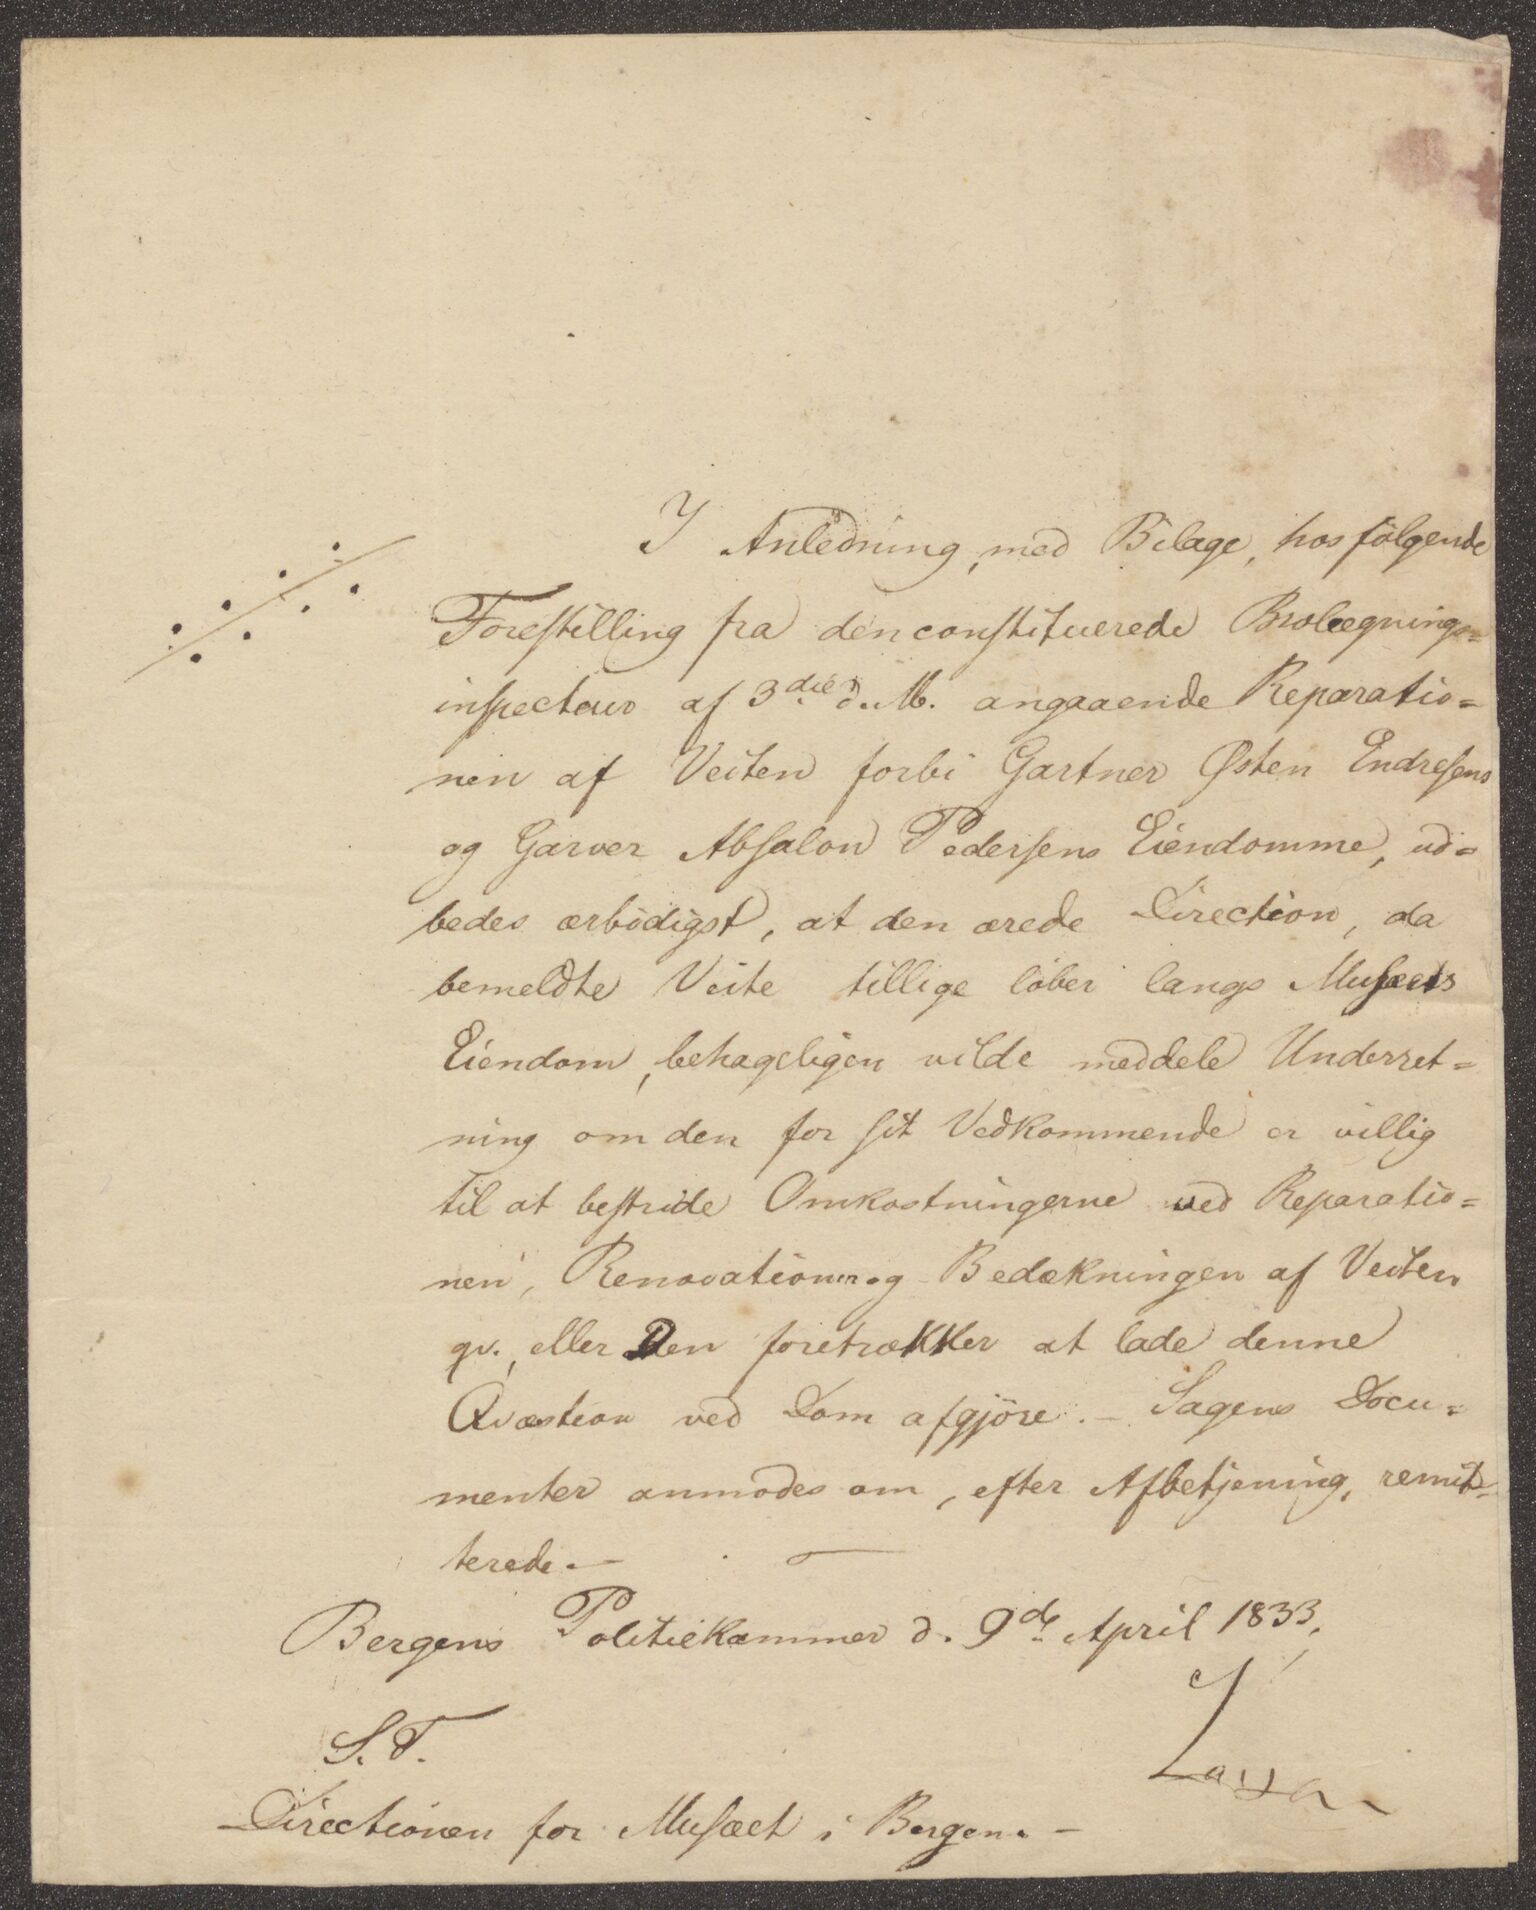 I Anledning, med Bilage, hosfølgende
Forestilling fra den constituerede Brolægnings=
inspecteur af 3die d. M. angaaende Reparatio=
nen af Veiten forbi Gartner Østen Endresens
og Garver Absalon Pedersens Eiendomme, ud=
bedes ærbödigst, at den ærede Direction, da
bemeldte Veite tillige löber langs Musæets
Eiendom, behageligen vilde meddele Underret=
ning om den for sit Vedkommende er villig
til at bestride Omkostningerne ved Reparatio=
nen, Renovationen og Bedækningen af Veiten
qv., eller Den foretrækker at lade denne
Qvæstion ved Dom afgjöre. – Sagens Docu=
menter anmodes om, efter Afbetjening, remit=
terede. –
Bergens Politiekammer d. 9de April 1833,
S. T.
Directionen for Musæet i Bergen. –